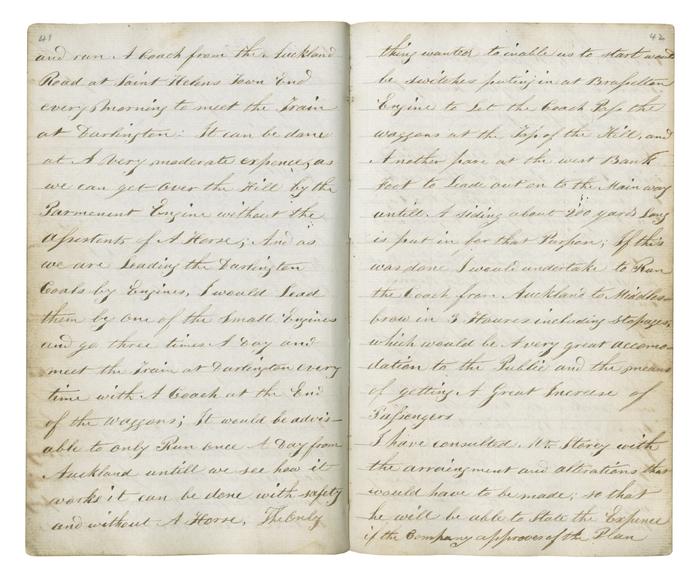 41
and run A Coach from the Auckland
Road at Saint Helens Town End
every Morning to meet the Train
at Darlington: It can be done
at A Very moderate expence, as
we can get Over the Hill by the
Parmenent Engine without the
assistents of A Horse; And as
we are Leading the Darlington
Coals by Engines, I would Lead
them by one of the Small Engines
and go three times A Day and
meet the Train at Darlington every
time with A Coach at the End
of the Waggons; It would be advis-
able to only Run once A Day from
Auckland untill we see how it
works it can be done with safety
and without A Horse. The Only
42
thing wanted to inable us to start would
be switches puting in at Brafselton
Engine to Let the Coach Pass the
waggons at the Top of the Hill, and
Another pare at the west Bank
foot to Leade out on to the Main way
untill A siding about 200 yards Long
is put in for that Purpose; If this
was done I would undertake to Run
the Coach from Auckland to Middles-
brow in 3 Houres including Stopages,
which would be A very great accomo-
dation to the Public and the means
of getting A Great Increase of
Passengers
I have consulted Mr Storey with
the arraingment and altrations that
would have to be made; so that
he will be able to State the Expence
if the Company approves of the Plan